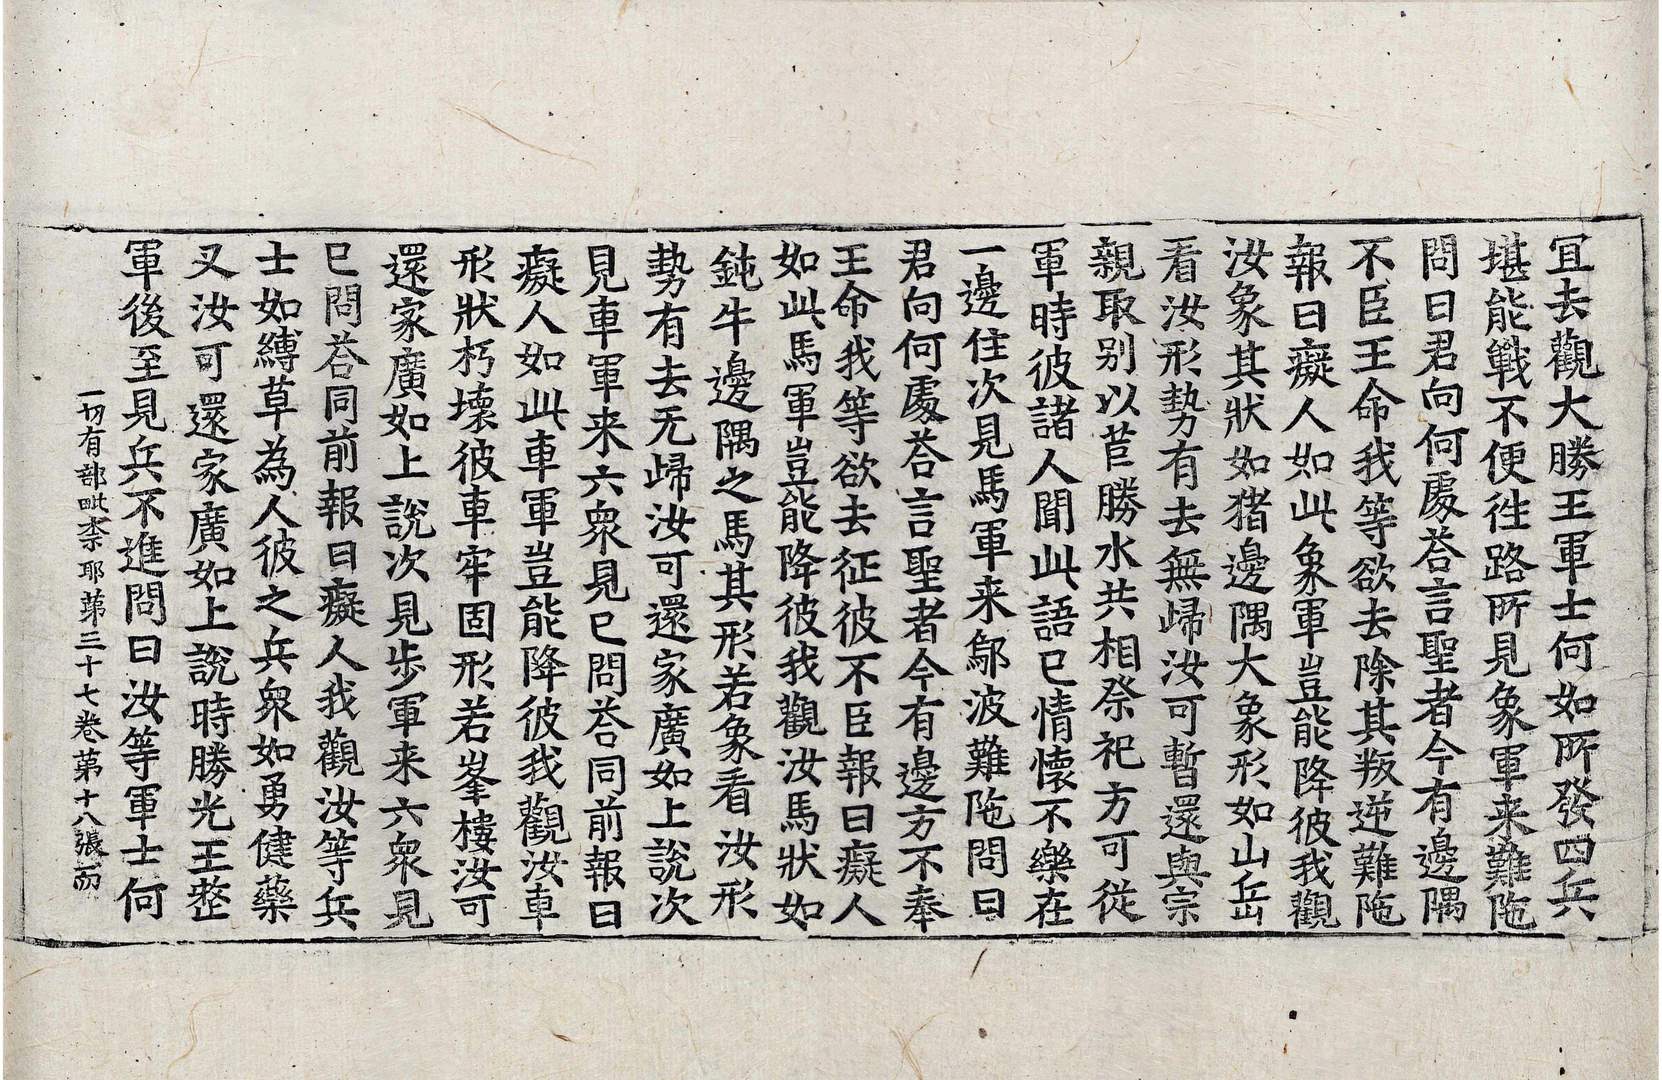 宜去觀大勝王軍士何如所發四兵
堪能戰不便徃路所見象軍来難陁
問曰君向何處荅言聖者今有邊隅
不臣王命我等欲去除其叛逆難陁
報曰癡人如此象軍豈能降彼我觀
汝象其狀如猪邊隅大象形如山岳
看汝形勢有去無歸汝可暫還與宗
親取别以苣勝水共相祭祀方可從
軍時彼諸人聞此語已情懷不樂在
一邊住次見馬軍来鄔波難陁問曰
君向何處荅言聖者今有邊方不奉
王命我等欲去征彼不臣報曰癡人
如此馬軍豈能降彼我觀汝馬狀如
鈍牛邊隅之馬其形若象看汝形
勢有去无歸汝可還家廣如上說次
見車軍来六衆見已問荅同前報曰
癡人如此車軍豈能降彼我觀汝車
形狀朽壞彼車牢固形若峯樓汝可
還家廣如上說次見步軍来六衆見
已問荅同前報曰癡人我觀汝等兵
士如縛草為人彼之兵衆如勇健藥
叉汝可還家廣如上說時勝光王整
軍後至見兵不進問曰汝等軍士何
一切有部毗柰耶苐三十七卷第十八張